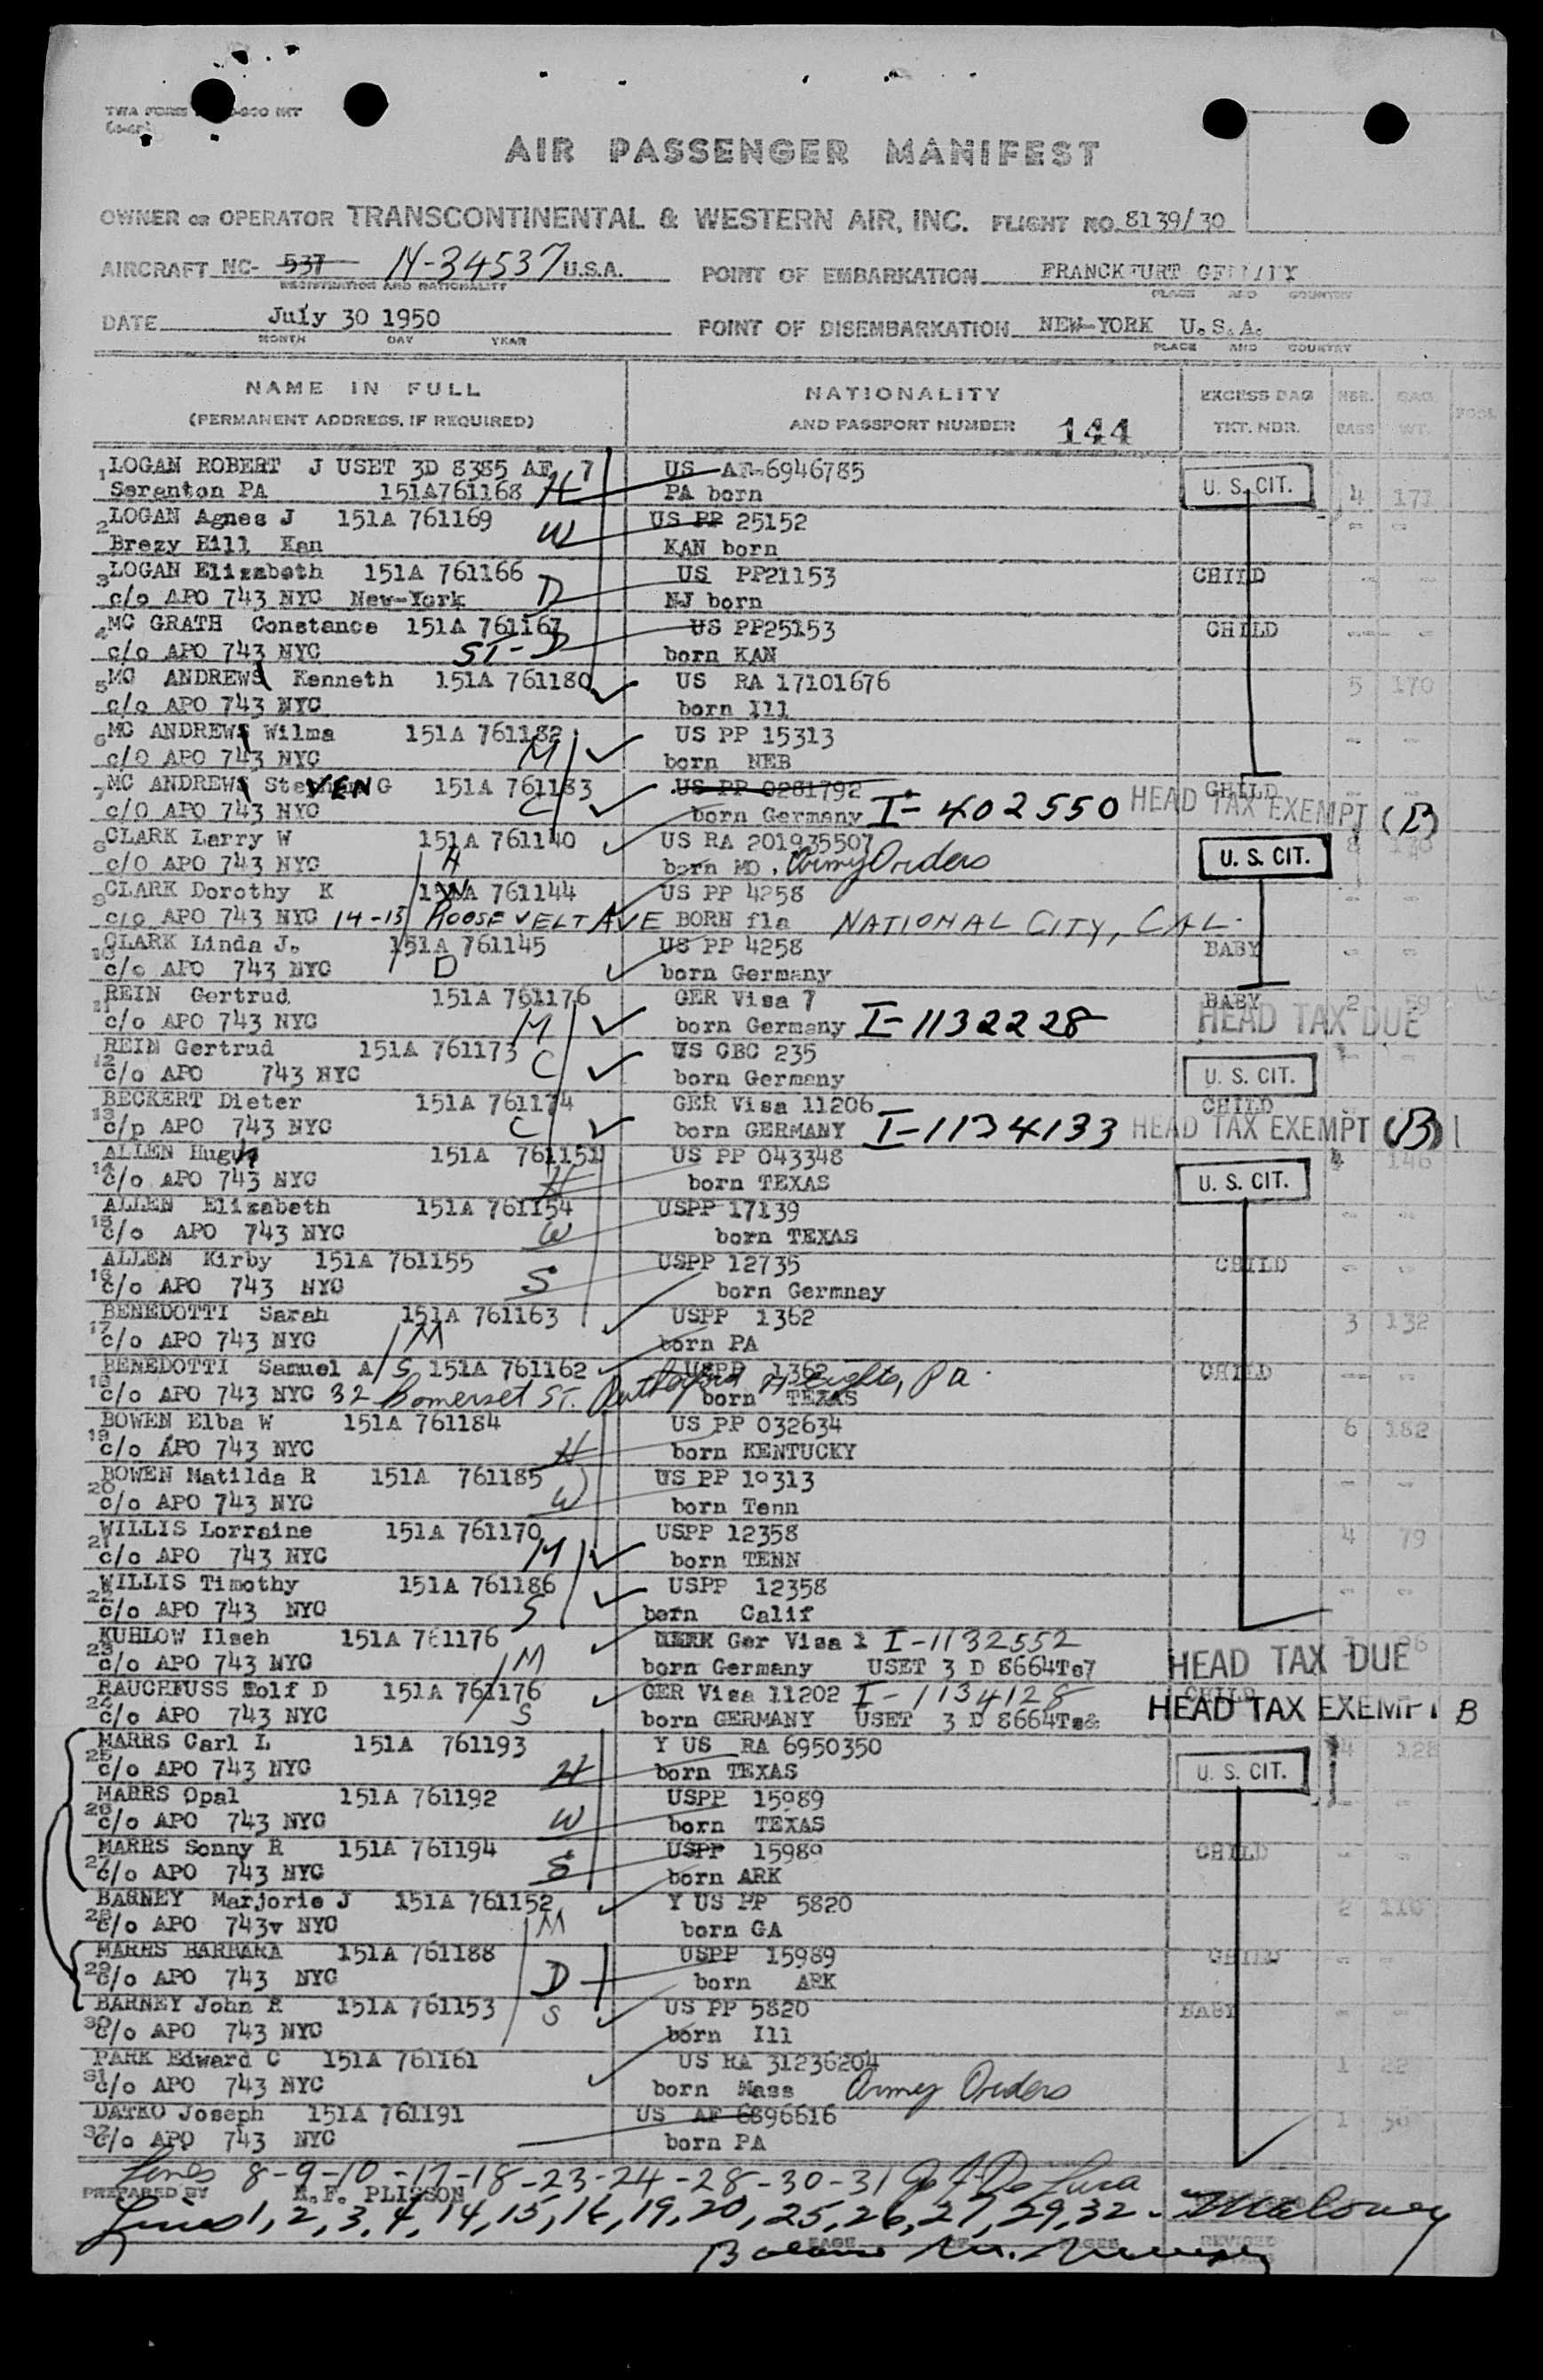 TWA FORM
AIR PASSENGER MANIFEST
OWNER OR OPERATOR TRANSCONTINENTAL & WESTERN AIR, INC. FLIGHT NO. 8139/30
AIRCRAFT NC- 537 N-34537 U.S.A. POINT OF EMBARKATION FRANCKFURT
REGISTRATION AND NATIONALITY PLACE AND COUNTRY
DATE July 30 1950 POINT OF DISEMBARKATION NEW-YORK U.S.A.
MONTH DAY YEAR PLACE AND COUNTRY
NAME IN FULL NATIONALITY EXCESS BAG NBR. BAG
(PERMANENT ADDRESS, IF REQUIRED) AND PASSPORT NUMBER 144 TKT. NBR. BAGS WT.
1 LOGAN ROBERT J USET 3D 8385 AF 7 US AF-6946785 U. S. CIT.
Serenton PA 151A761168 H PA born 4 177
2 LOGAN Agnes J 151A 761169 W US PP 25152
Brezy Hill Kan KAN born
3 LOGAN Elizabeth 151A 761166 US PP21153 CHILD
c/o APO 743 NYC New-York D NJ born
4 MC GRATH Constance 151A 761167 US PP25153 CHILD
c/o APO 743 NYC ST-D born KAN
5 MC ANDREWS Kenneth 151A 761180 US RA 17101676 5 170
c/o APO 743 NYC born Ill
6 MC ANDREWS Wilma 151A 761182 US PP 15313
c/O APO 743 NYC M born NEB
7 MC ANDREWS Ste VEN G 151A 761183 US PP 0281792 CHILD
c/O APO 743 NYC C born Germany I-402550 HEAD TAX EXEMPT (B)
8 CLARK Larry W 151A 761140 US RA 201935507 U. S. CIT.
c/O APO 743 NYC H born MO. Army Orders
9 CLARK Dorothy K 151A 761144 W US PP 4258
c/o APO 743 NYC 14-15 ROOSEVELT AVE BORN fla NATIONAL CITY, CAL.
10 CLARK Linda J. 151A 761145 US PP 4258 BABY
c/o APO 743 NYC D born Germany
REIN Gertrud 151A 761176 GER Visa 7 BABY 2 59
c/o APO 743 NYC M born Germany I-1132228 HEAD TAX DUE
12 REIN Gertrud 151A 761173 C US CBC 235
c/o APO 743 NYC born Germany U. S. CIT.
13 BECKERT Dieter 151A 761174 GER Visa 11206 CHILD
c/p APO 743 NYC C born GERMANY I-1134133 HEAD TAX EXEMPT (B)
14 ALLEN Hugh 151A 761151 US PP 043348 4 146
c/o APO 743 NYC H born TEXAS U. S. CIT.
15 ALLEN Elizabeth 151A 761154 USPP 17139
c/o APO 743 NYC W born TEXAS
16 ALLEN Kirby 151A 761155 USPP 12735 CHILD
c/o APO 743 NYC S born Germnay
17 BENEDOTTI Sarah 151A 761163 USPP 1362 3 132
c/o APO 743 NYC M born PA
18 BENEDOTTI Samuel A S 151A 761162 USPP 1362 CHILD
c/o APO 743 NYC 32 Somerset ST. Rutherford Heights, Pa. born TEXAS
19 BOWEN Elba W 151A 761184 US PP 032634 6 182
c/o APO 743 NYC H born KENTUCKY
20 BOWEN Matilda R 151A 761185 US PP 10313
c/o APO 743 NYC W born Tenn
21 WILLIS Lorraine 151A 761170 USPP 12358 4 79
c/o APO 743 NYC M born TENN
22 WILLIS Timothy 151A 761186 USPP 12358
c/o APO 743 NYC S born Calif
23 KUHLOW Ilseh 151A 761176 Ger Visa 1 I-1132552
c/o APO 743 NYC M born Germany USET 3 D 8664Ts7 HEAD TAX DUE
24 RAUCHFUSS Rolf D 151A 761176 GER Visa 11202 I-1134128 CHILD
c/o APO 743 NYC S born GERMANY USET 3 D 8664Ts& HEAD TAX EXEMPT B
25 MARRS Carl L 151A 761193 Y US RA 6950350 4 128
c/o APO 743 NYC H born TEXAS U. S. CIT.
26 MARRS Opal 151A 761192 USPP 15989
c/o APO 743 NYC W born TEXAS
27 MARRS Sonny R 151A 761194 USPP 15989 CHILD
c/o APO 743 NYC S born ARK
28 BARNEY Marjorie J 151A 761152 Y US PP 5820 2 110
c/o APO 743v NYC M born GA
29 MARRS BARBARA 151A 761188 USPP 15989 CHILD
c/o APO 743 NYC D born ARK
30 BARNEY John R 151A 761153 S US PP 5820 BABY
c/o APO 743 NYC born Ill
31 PARK Edward C 151A 761161 US RA 31236204 1 22
c/o APO 743 NYC born Mass Army Orders
32 DATKO Joseph 151A 761191 US AF 6896616 1 50
c/o APO 743 NYC born PA
Lines 8-9-10-17-18-23-24-28-30-31
PREPARED BY PLISSON
Lines 1, 2, 3, 4, 14, 15, 16, 19, 20, 25, 26, 27, 29, 32 - Maloney
Balance